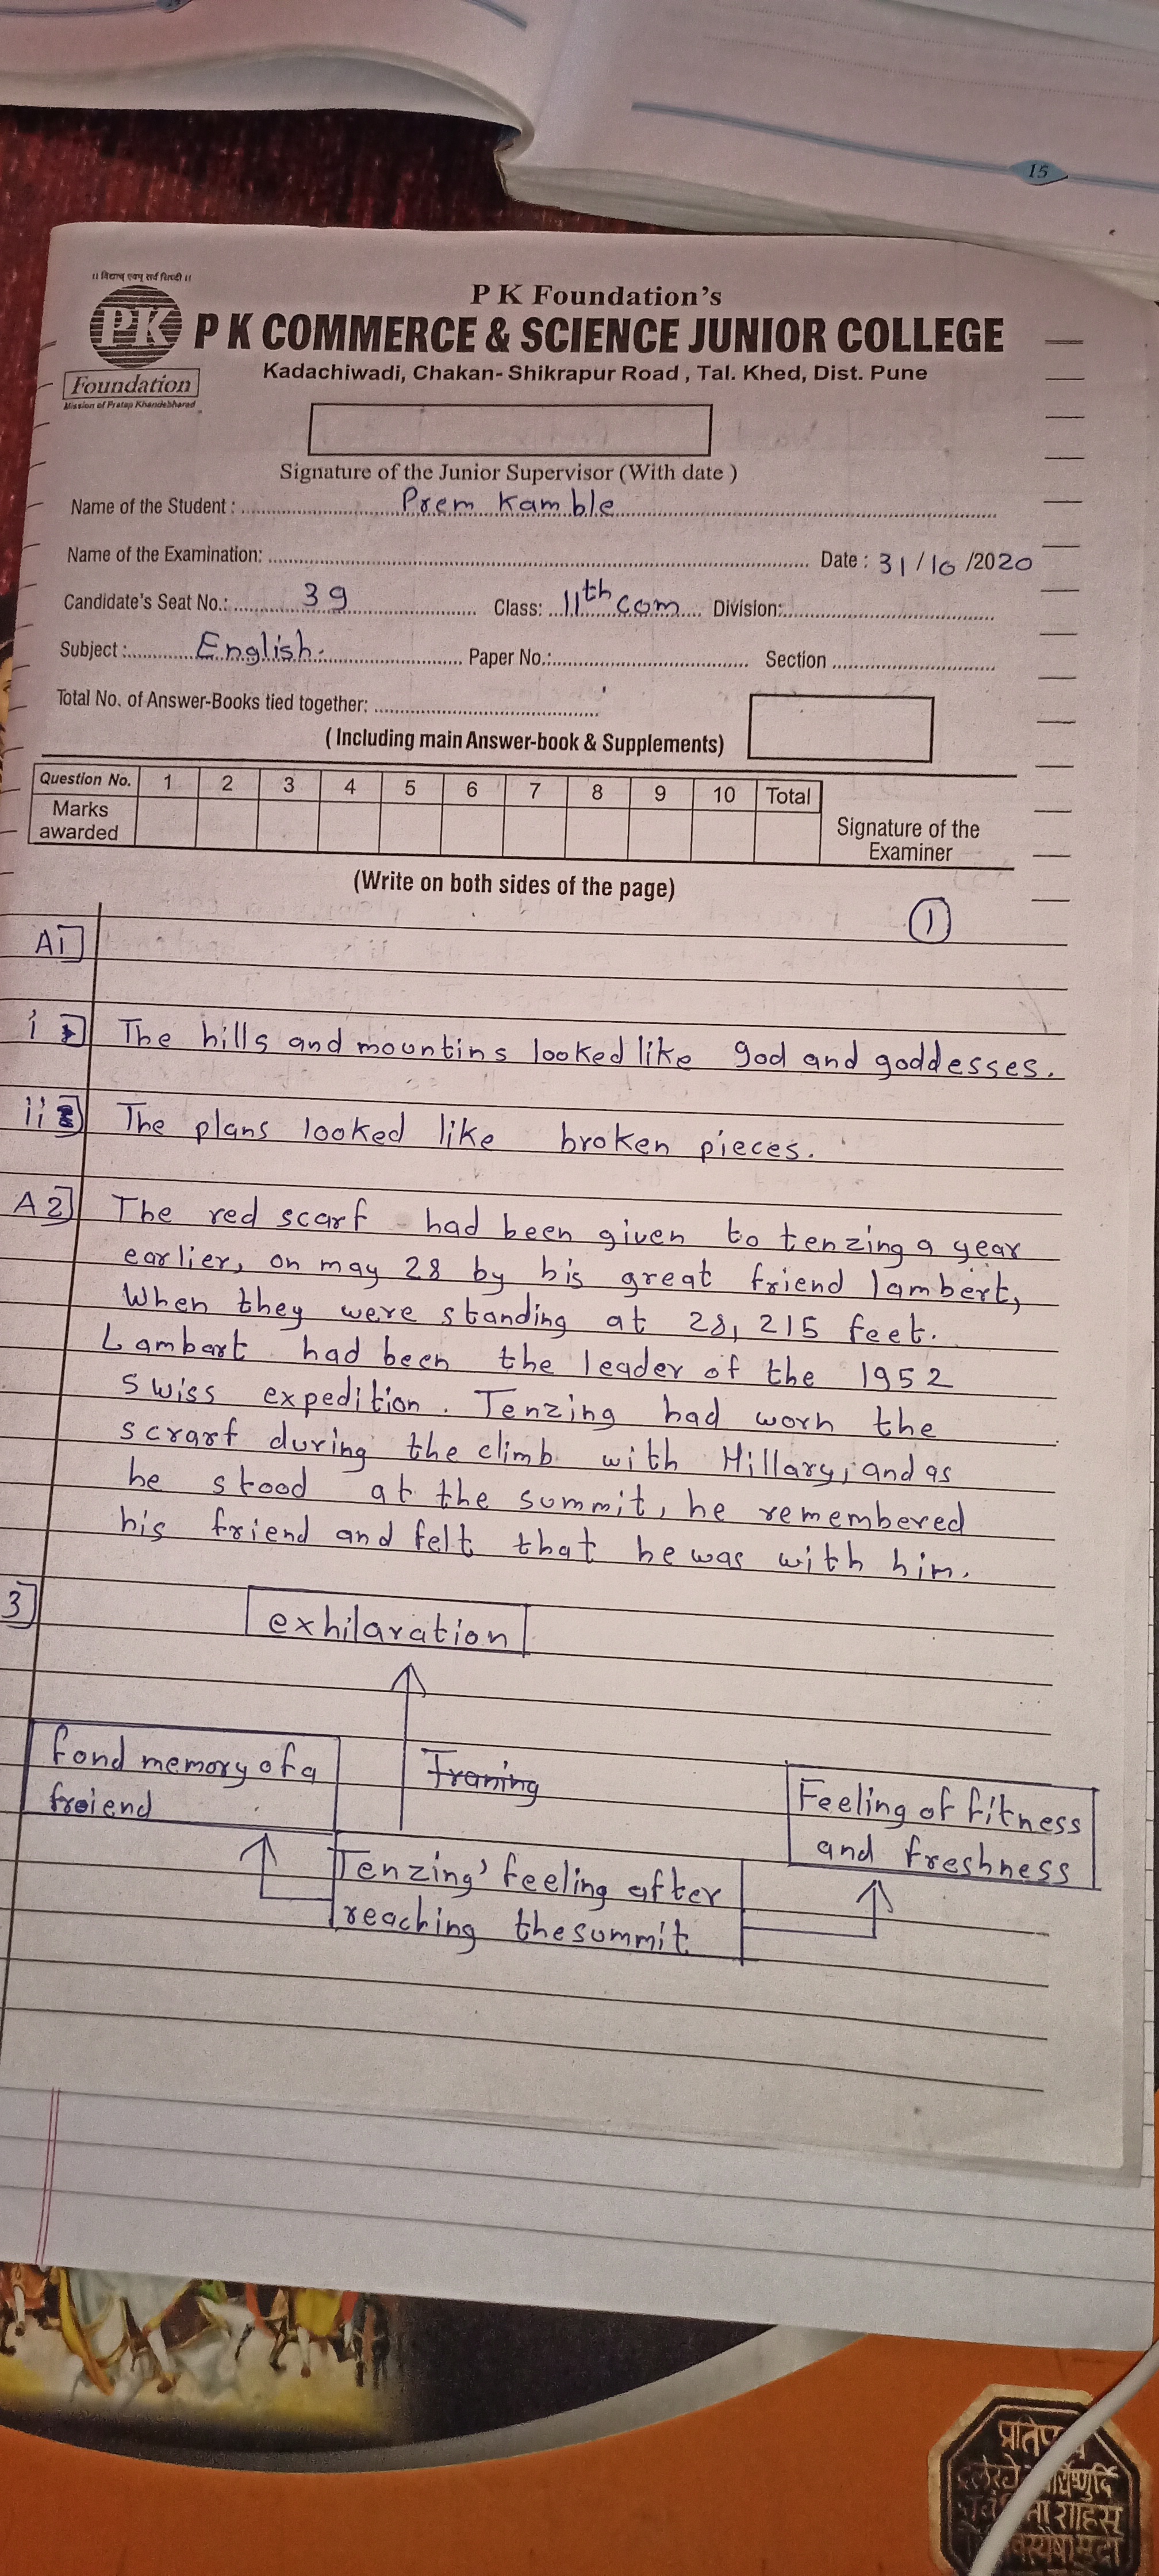 15
।। विद्याच् एवम् सर्व सिध्दी ।।
PK
Foundation
Mission of Pratap Khandebharad
P K Foundation's
P K COMMERCE & SCIENCE JUNIOR COLLEGE
Kadachiwadi, Chakan- Shikrapur Road , Tal. Khed, Dist. Pune
Signature of the Junior Supervisor (With date )
Name of the Student : Prem Kamble
Name of the Examination: Date : 31/10/2020
Candidate's Seat No.: 39 Class: 11th com Division:
Subject : English. Paper No.: Section
Total No. of Answer-Books tied together:
( Including main Answer-book & Supplements)
Question No. 1 2 3 4 5 6 7 8 9 10 Total
Marks awarded
Signature of the
Examiner
(Write on both sides of the page)
1
A1]
i ] The hills and mountins looked like god and goddesses.
ii ] The plans looked like broken pieces.
A2] The red scarf had been given to tenzing a year
earlier, on may 28 by his great friend lambert,
When they were standing at 28, 215 feet.
Lambart had been the leader of the 1952
Swiss expedition. Tenzing had worn the
scrarf during the climb with Hillary, and as
he stood at the summit, he remembered
his friend and felt that he was with him.
3]
exhilaration
fond memory of a
froiend
Franing
Feeling of fitness
and freshness
Tenzing' feeling after
reaching the summit